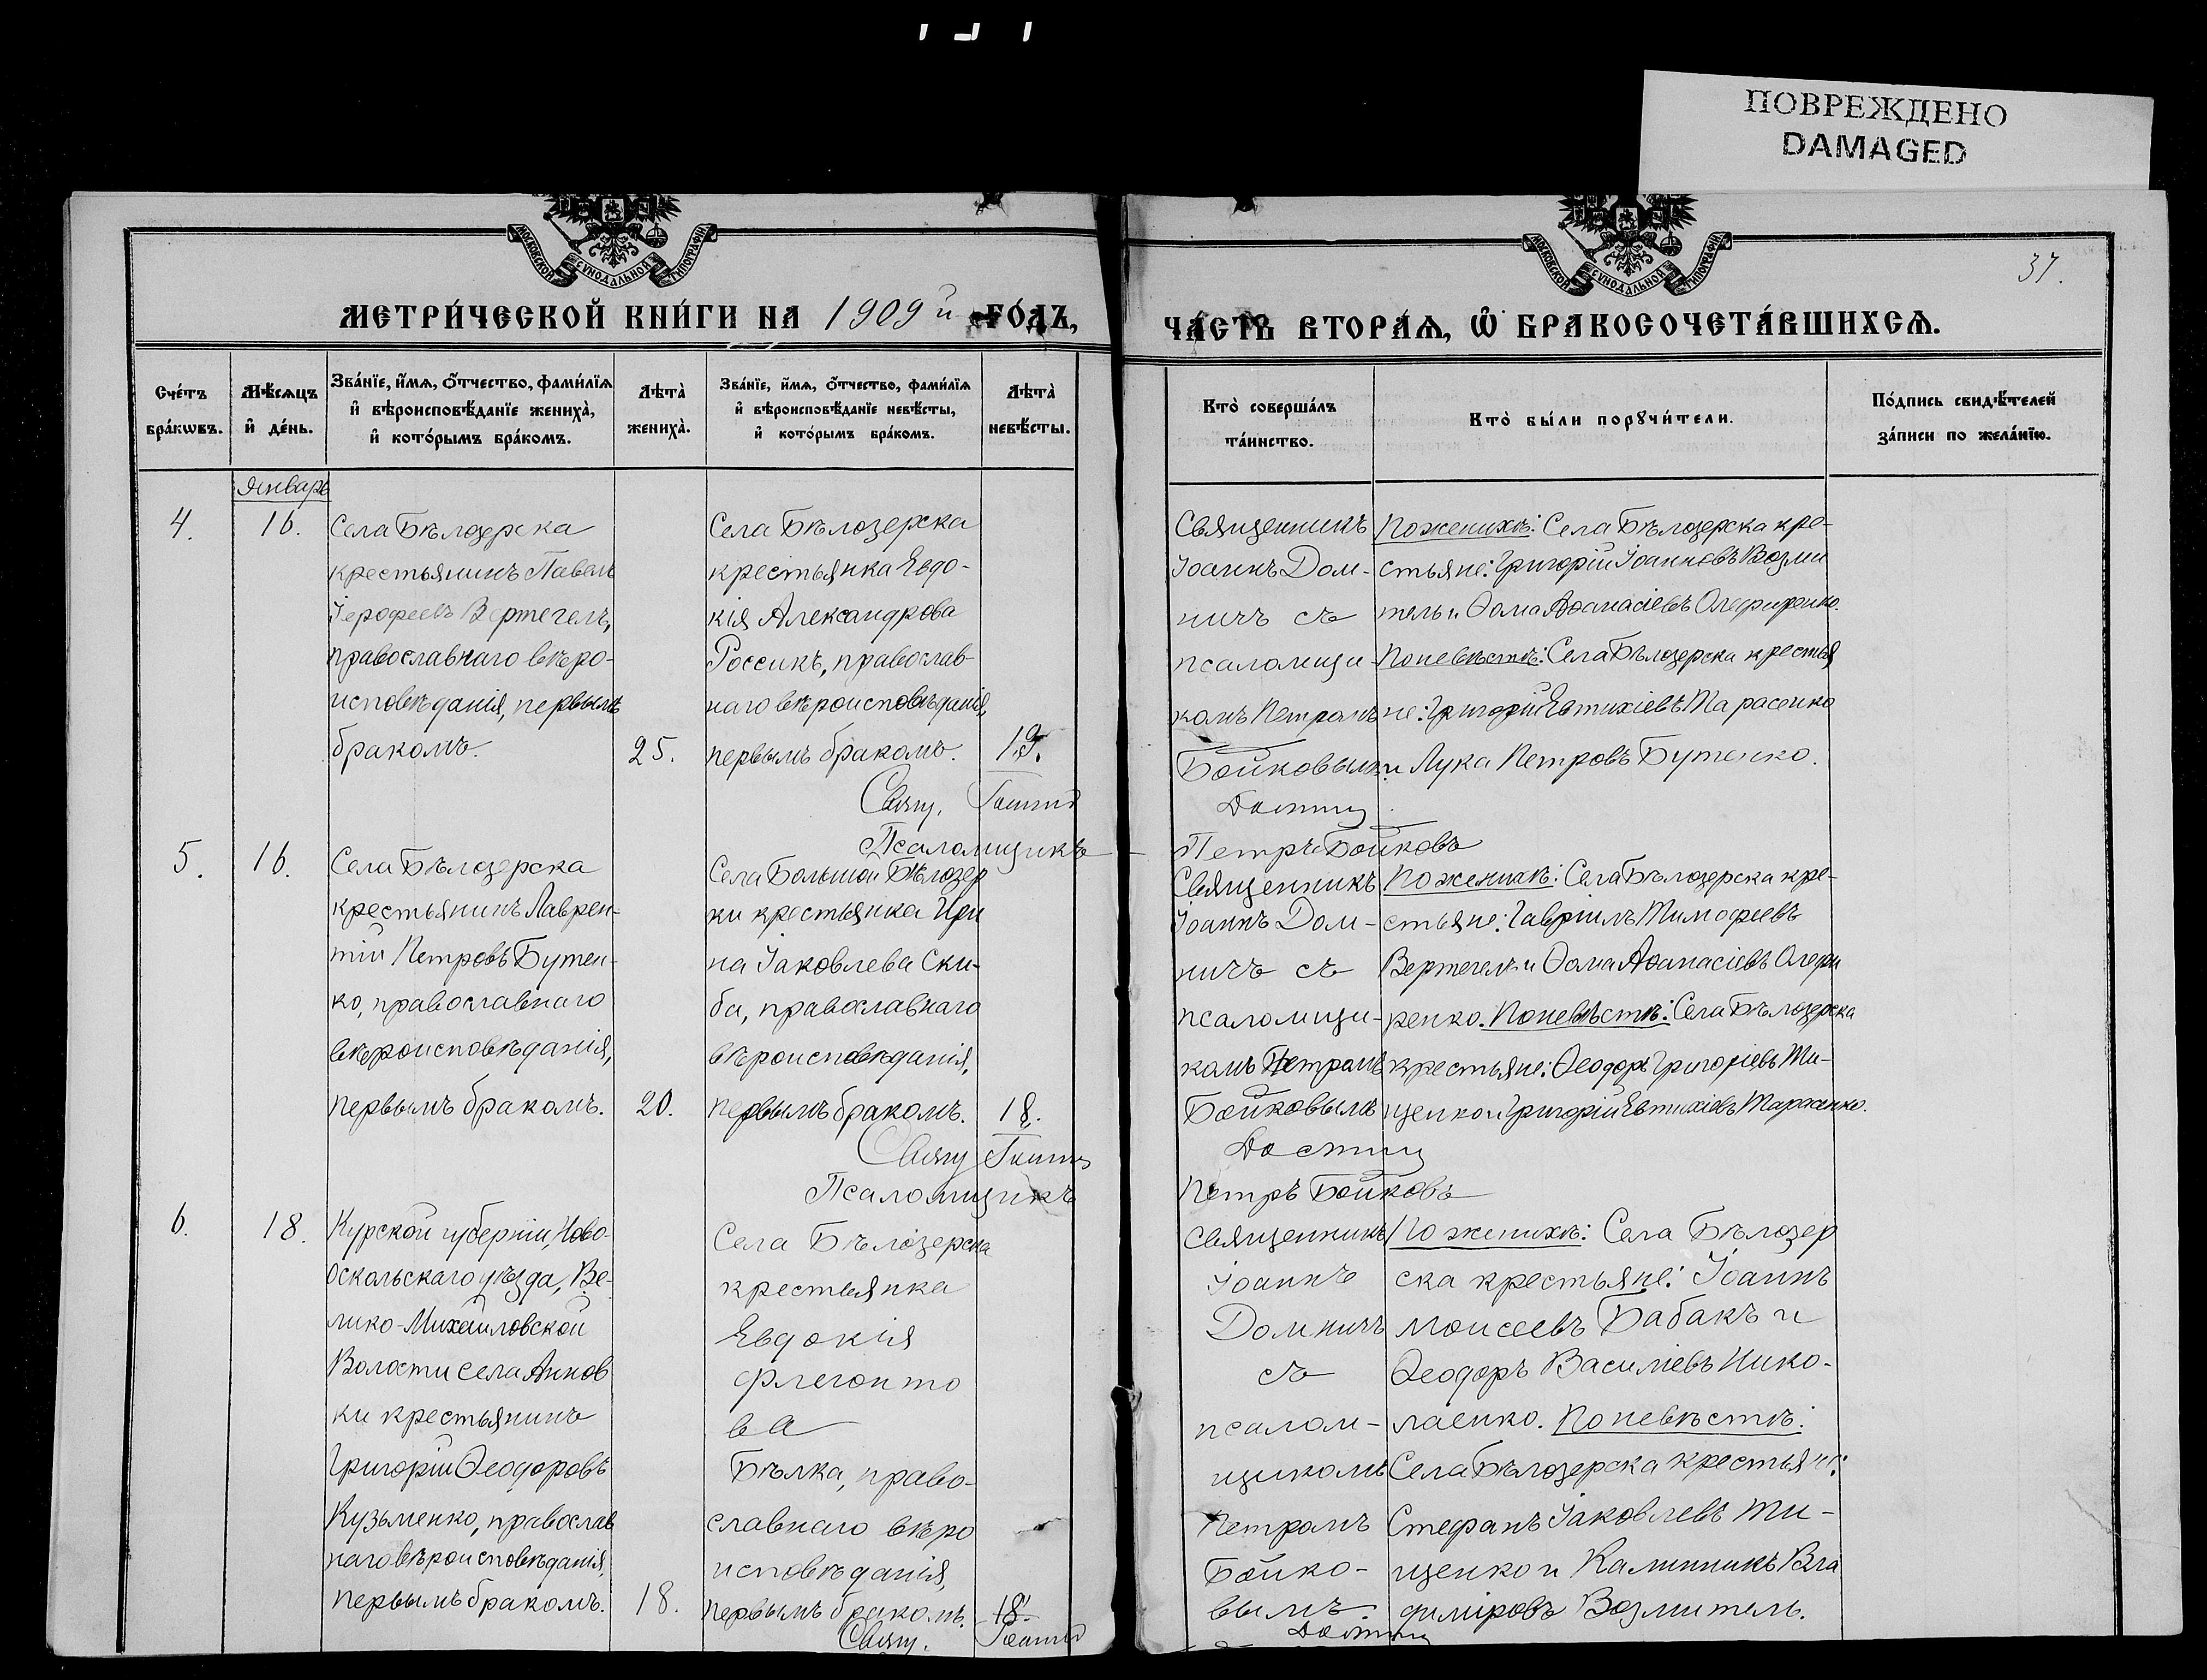 ПОВРЕЖДЕНО
DAMAGED
МОСКОВСКОЙ СУНОДАЛЬНОЙ ТИПОГРАФІИ
МОСКОВСКОЙ СУНОДАЛЬНОЙ ТИПОГРАФІИ
37.
МЕТРИ́ЧЕСКОЙ КНИ́ГИ НА 1909й ГО́ДЪ,
ЧА́СТЬ ВТОРА́Ѧ, Ѽ БРАКОСОЧЕТА́ВШИХСѦ.
Сче́тъ
бра́кѡвъ.
Мѣ́сѧцъ
и҆ де́нь.
Зва́нїе, и҆́мѧ, ѻ҆́тчество, фами́лїѧ
и҆ вѣроисповѣ́данїе жениха̀,
и҆ кото́рымъ бра́комъ.
Лѣта̀
жениха̀.
Зва́нїе, и҆́мѧ, ѻ҆́тчество, фами́лїѧ
и҆ вѣроисповѣ́данїе невѣ́сты,
и҆ кото́рымъ бра́комъ.
Лѣта̀
невѣ́сты.
Кто̀ соверша́лъ
та́инство.
Кто̀ бы́ли порꙋчи́тели.
По́дпись свидѣ́телей
за́писи по жела́нїю.
Январь
4.
16.
Села Бѣлозерска
крестьянинъ Павелъ
Іерофеевъ Вертегелъ,
православнаго вѣро-
исповѣданія, первымъ
бракомъ.
25.
Села Бѣлозерска
крестьянка Евдо-
кія Александрова
Россикъ, православ-
наго вѣроисповѣданія,
первымъ бракомъ.
19.
Священникъ
Іоаннъ Дом-
ничъ съ
псаломщи-
комъ Петромъ
Бойковымъ
По женихѣ: Села Бѣлозерска кре-
стьяне: Григорій Іоанновъ Возми
тель и Ѳома Аѳанасіевъ Олефиренко.
По невѣстѣ: Села Бѣлозерска крестья
не: Григорій Евтихіевъ Тарасенко
и Лука Петровъ Бутенко.
Свящ. Іоаннъ Домнич
Псаломщикъ Петръ Бойковъ
5.
16.
Села Бѣлозерска
крестьянинъ Лаврен-
тій Петровъ Бутен-
ко, православнаго
вѣроисповѣданія,
первымъ бракомъ.
20.
Села Большой Бѣлозер
ки крестьянка Ири
на Іаковлева Ски-
ба, православнаго
вѣроисповѣданія,
первымъ бракомъ.
18.
Священникъ
Іоаннъ Дом-
ничъ съ
псаломщи-
комъ Петромъ
Бойковымъ
По женихѣ: Села Бѣлозерска кре-
стьяне: Гавріилъ Тимофеевъ
Вертегелъ и Ѳома Аѳанасіевъ Олефи
ренко. По невѣстѣ: Села Бѣлозерска
крестьяне: Ѳеодоръ Григоріевъ Ти-
щенко и Григорій Евтихіевъ Тарасенко.
Свящ Іоаннъ Домнич
Псаломщикъ Петръ Бойковъ
6.
18.
Курской губерніи, Ново-
оскольскаго уѣзда, Ве-
лико-Михайловской
Волости села Аннов
ки крестьянинъ
Григорій Ѳеодоровъ
Кузьменко, православ
наго вѣроисповѣданія,
первымъ бракомъ.
18.
Села Бѣлозерска
крестьянка
Евдокія
Флегонто
ва
Бѣлка, право-
славнаго вѣро
исповѣданія,
первымъ бракомъ.
18.
Священникъ
Іоаннъ
Домничъ
съ
псалом-
щикомъ
Петромъ
Бойко-
вымъ.
По женихѣ: Села Бѣлозер
ска крестьяне: Іоаннъ
Моисеевъ Бабакъ и
Ѳеодоръ Василіевъ Нико-
лаенко. По невѣстѣ:
Села Бѣлозерска крестьяне:
Стефанъ Іаковлевъ Ти-
щенко и Калинникъ Вла
диміровъ Возмитель.
Свящ. Іоаннъ Домнич